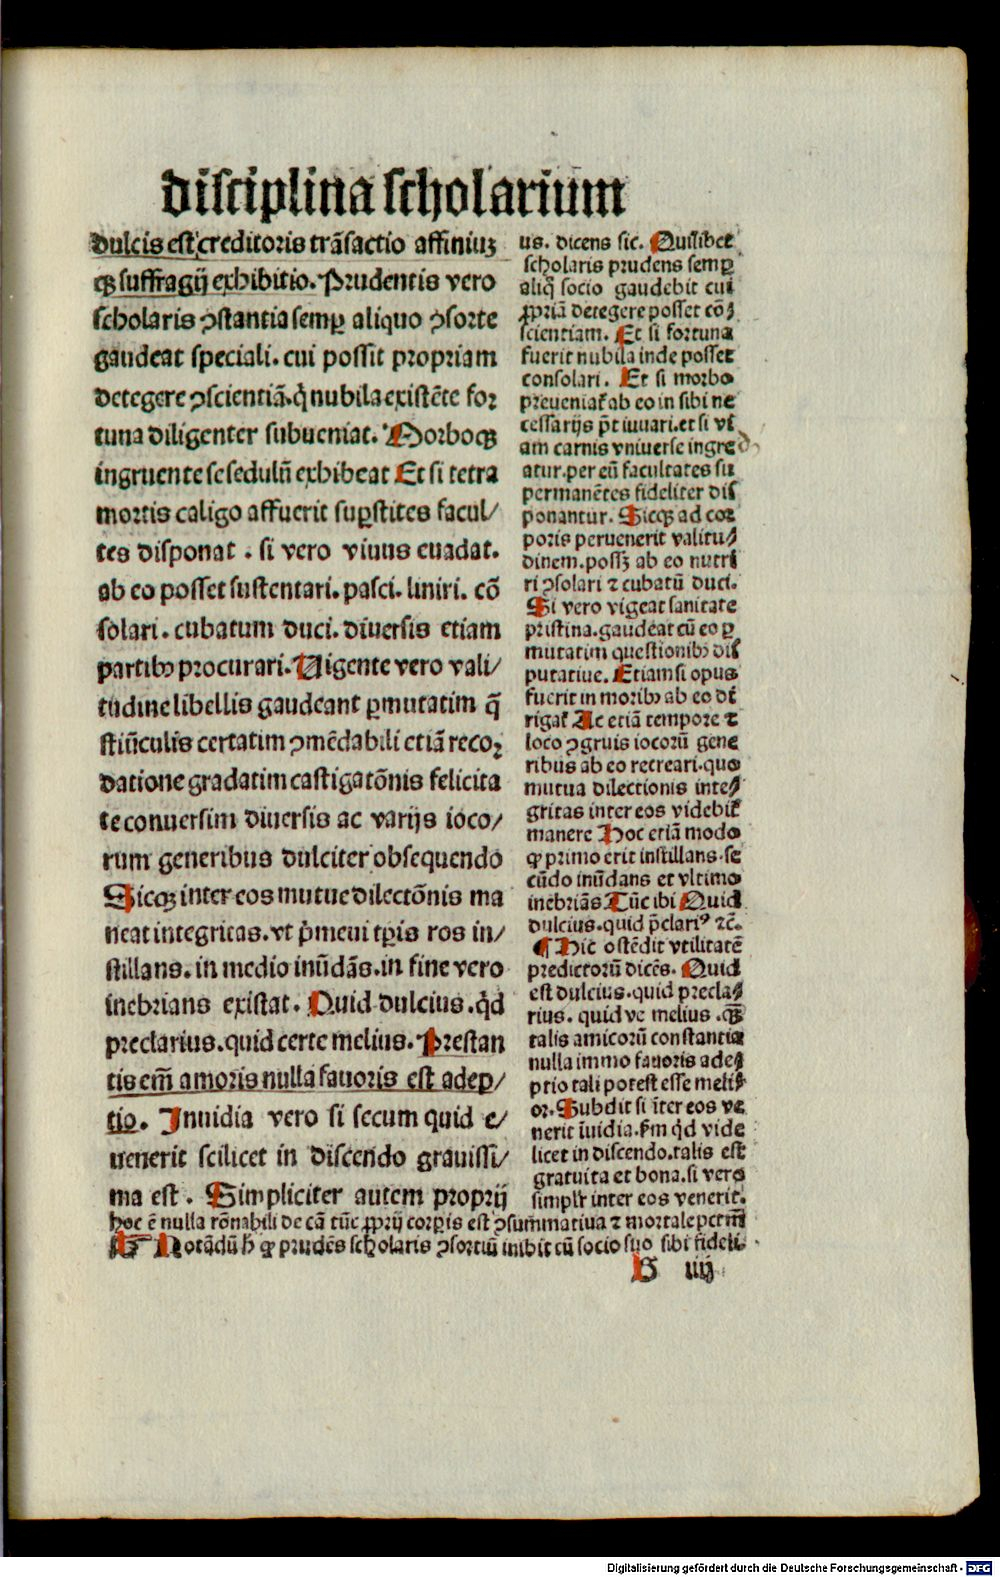 disciplina scholarium
dulcis est creditoris trãsactio affiniuʒ
qʒ suffragij exhibitio. Prudentis vero
scholaris ꝯstantia semꝑ aliquo ꝯsorte
gaudeat speciali. cui possit propriam
detegere ꝯscientiã. q̇ nubila existẽte for
tuna diligenter subueniat. Morboqʒ
ingruente se sedulũ exhibeat Et si tetra
mortis caligo affuerit suꝑstites facul/
tes disponat . si vero viuus euadat.
ab eo posset sustentari. pasci. liniri. cõ
solari. cubatum duci. diuersis etiam
partibꝫ procurari. Uigente vero vali/
tudine libellis gaudeant ꝑmutatim q̃
stiũculis certatim ꝯmẽdabili etiã recoꝛ
datione gradatim castigatõnis felicita
te conuersim diuersis ac varijs ioco/
rum generibus dulciter obsequendo
Sicqʒ inter eos mutue dilectõnis ma
neat integritas. vt p̃meui tꝑis ros in/
stillans. in medio inũdãs. in fine vero
inebrians existat. Quid dulcius. q̇d
preclarius. quid certe melius. Prestan
tis em̃ amoris nulla fauoris est adep/
tio. Inuidia vero si secum quid e/
uenerit scilicet in discendo grauissi/
ma est . Simpliciter autem proprij
us. dicens sic. Quilibet
scholaris prudens semꝑ
aliq̃ socio gaudebit cui
ꝓpriã detegere posset cõ/
scientiam. Et si fortuna
fuerit nubila inde posset
consolari. Et si morbo
preueniat᷑ ab eo in sibi ne
cessarijs p̃t iuuari. et si vi
am carnis vniuerse ingre
atur. per eũ facultates su
permanẽtes fideliter dis
ponantur. Sicqʒ ad cor
poris peruenerit valitu/
dinem. possʒ ab eo nutri
ri ꝯsolari ⁊ cubatũ duci.
Si vero vigeat sanitate
pristina. gaudeat cũ eo ꝑ
mutatim questionibꝫ dis
putatiue. Etiam si opus
fuerit in moribꝫ ab eo di
rigat᷑ Ac etiã tempore ⁊
loco ꝯgruis iocorũ gene
ribus ab eo recreari. quo
mutua dilectionis inte/
gritas inter eos videbit᷑
manere Hoc etiã modo
ꝙ primo erit instillans. se
cũdo inũdans et vltimo
inebriãs Tũc ibi Quid
dulcius. quid p̃clariꝰ ⁊c̃.
¶ Hic ostẽdit vtilitatẽ
predictorũ dicẽs. Quid
est dulcius. quid precla/
rius. quid ve melius . qʒ
talis amicorũ constantia
nulla immo fauoris ade/
ptio tali potest esse meli/
or. Subdit si ĩter eos ve
nerit ĩuidia. s̃m q̇d vide
licet in discendo. talis est
gratuita et bona. si vero
simplr̃ inter eos venerit.
hoc ẽ nulla rõnabili de cã tũc ꝓprij corꝑis est ꝯsum̃matiua ⁊ mortale petm̃
Notãdũ h̃ ꝙ prudẽs scholaris ꝯsortiũ inibit cũ socio suo sibi fideli.
B iiij
Digitalisierung gefördert durch die Deutsche Forschungsgemeinschaft - DFG